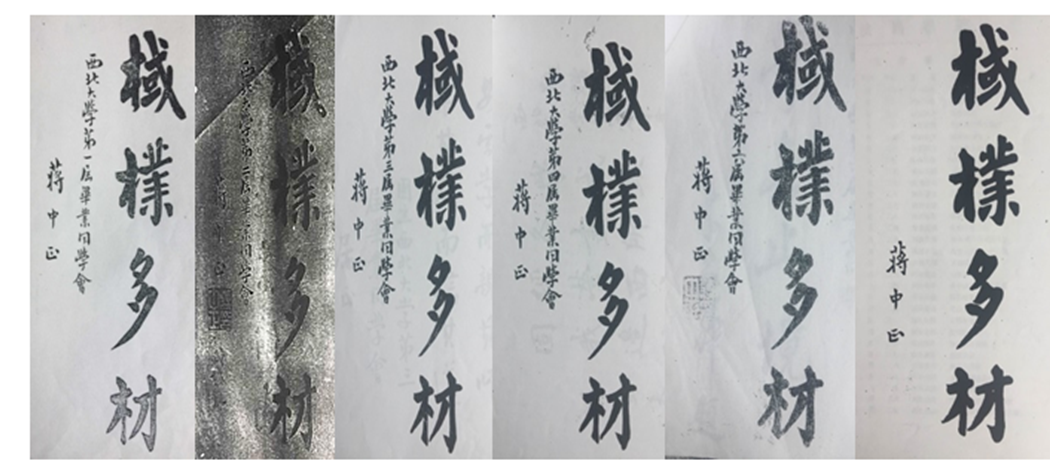 棫樸多材
西北大學第一届畢業同學會
蔣中正
棫樸多材
西北大學第二届畢業同學會
蔣中正
棫樸多材
西北大學第三届畢業同學會
蔣中正
棫樸多材
西北大學第四届畢業同學會
蔣中正
棫樸多材
西北大學第六届畢業同學會
蔣中正
棫樸多材
蔣中正